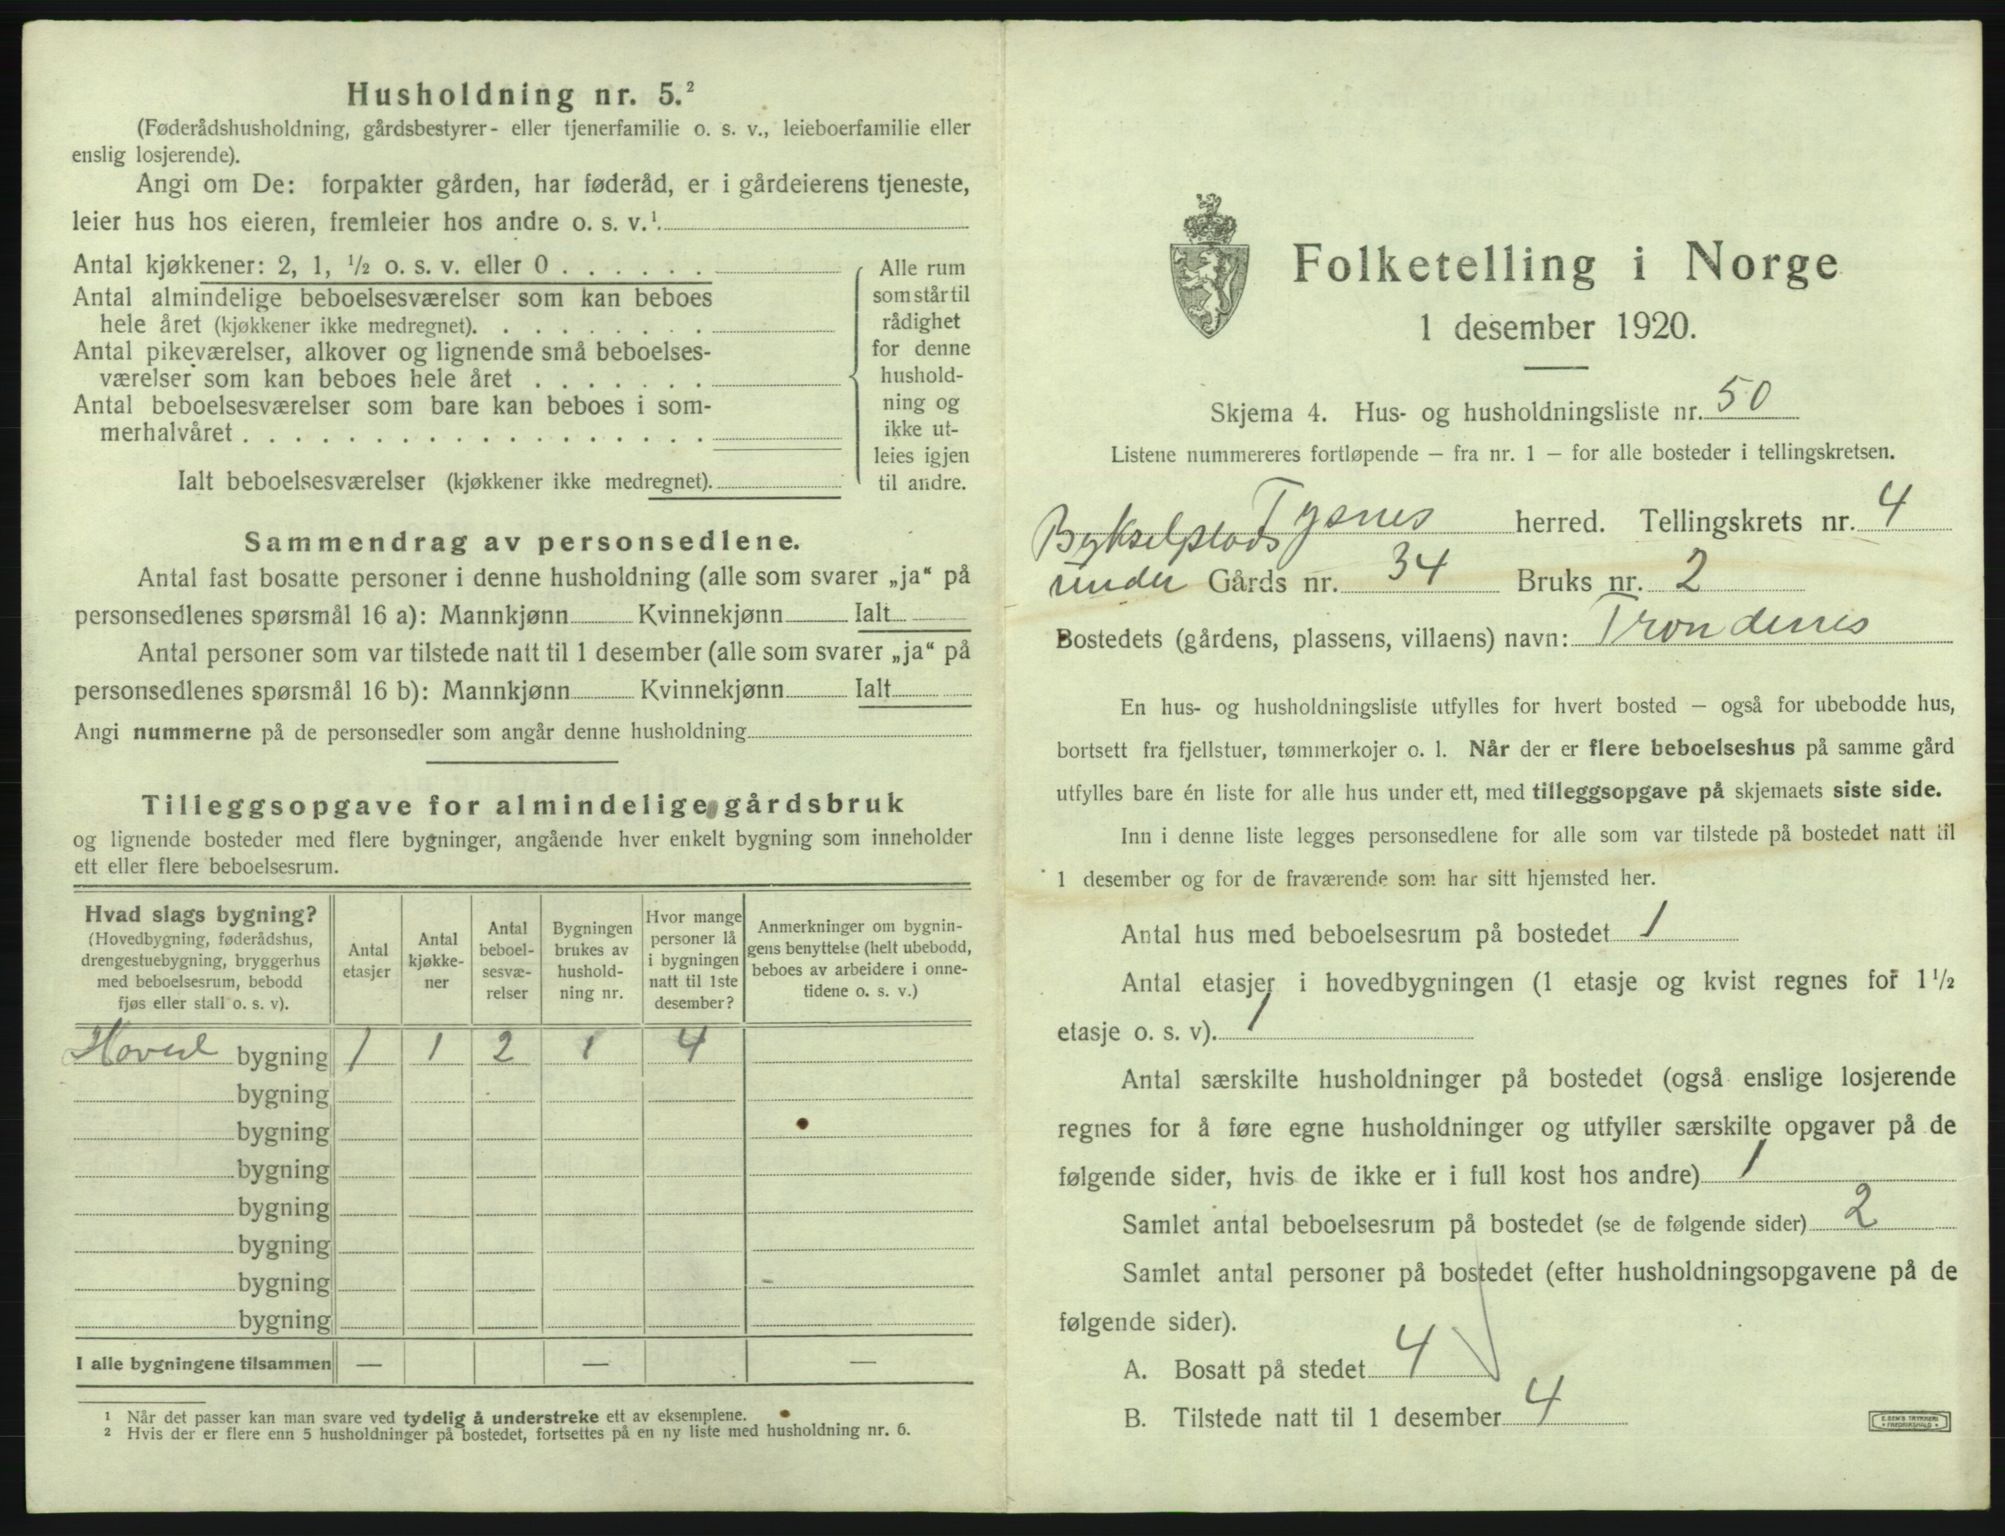 Husholdning nr. 5.²
(Føderådshusholdning, gårdsbestyrer- eller tjenerfamilie o. s. v., leieboerfamilie eller
enslig losjerende).
Angi om De: forpakter gården, har føderåd, er i gårdeierens tjeneste,
leier hus hos eieren, fremleier hos andre o. s. v.¹
Antal kjøkkener: 2, 1, ½ o. s. v. eller 0 . . . . . .
Antal almindelige beboelsesværelser som kan beboes
hele året (kjøkkener ikke medregnet). . . . . . . . .
Antal pikeværelser, alkover og lignende små beboelses-
værelser som kan beboes hele året . . . . . . .
Antal beboelsesværelser som bare kan beboes i som-
merhalvåret . . . . . . . . . . . . . . . . . .
Ialt beboelsesværelser (kjøkkener ikke medregnet).
Alle rum
som står til
rådighet
for denne
hushold-
ning og
ikke ut-
leies igjen
til andre.
Sammendrag av personsedlene.
Antal fast bosatte personer i denne husholdning (alle som svarer „ja" på
personsedlenes spørsmål 16 a): Mannkjønn Kvinnekjønn Ialt
Antal personer som var tilstede natt til 1 desember (alle som svarer „ja" på
personsedlenes spørsmål 16 b): Mannkjønn Kvinnekjønn Ialt
Angi nummerne på de personsedler som angår denne husholdning
Tilleggsopgave for almindelige gårdsbruk
og lignende bosteder med flere bygninger, angående hver enkelt bygning som inneholder
ett eller flere beboelsesrum.
Hvad slags bygning?
(Hovedbygning, føderådshus,
drengestuebygning, bryggerhus
med beboelsesrum, bebodd
fjøs eller stall o. s. v).
Antal
etasjer
Antal
kjøkke-
ner
Antal
beboel-
sesvæ-
relser
Bygningen
brukes av
hushold-
ning nr.
Hvor mange
personer lå
i bygningen
natt til 1ste
desember?
Anmerkninger om bygnin-
gens benyttelse (helt ubebodd,
beboes av arbeidere i onne-
tidene o. s. v.)
Hoved bygning 1 1 2 1 4
bygning
bygning
bygning
bygning
bygning
bygning
bygning
I alle bygningene tilsammen — — —
¹ Når det passer kan man svare ved tydelig å understreke ett av eksemplene.
² Hvis der er flere enn 5 husholdninger på bostedet, fortsettes på en ny liste med husholdning nr. 6.
Folketelling i Norge
1 desember 1920.
Skjema 4. Hus- og husholdningsliste nr. 50
Listene nummereres fortløpende — fra nr. 1 — for alle bosteder i tellingskretsen.
Tysnes herred. Tellingskrets nr. 4
Bykselplads
under Gårds nr. 34 Bruks nr. 2
Bostedets (gårdens, plassens, villaens) navn: Trondenes
En hus- og husholdningsliste utfylles for hvert bosted — også for ubebodde hus,
bortsett fra fjellstuer, tømmerkojer o. l. Når der er flere beboelseshus på samme gård
utfylles bare én liste for alle hus under ett, med tilleggsopgave på skjemaets siste side.
Inn i denne liste legges personsedlene for alle som var tilstede på bostedet natt til
1 desember og for de fraværende som har sitt hjemsted her.
Antal hus med beboelsesrum på bostedet 1
Antal etasjer i hovedbygningen (1 etasje og kvist regnes for 1½
etasje o. s. v). 1
Antal særskilte husholdninger på bostedet (også enslige losjerende
regnes for å føre egne husholdninger og utfyller særskilte opgaver på de
følgende sider, hvis de ikke er i full kost hos andre) 1
Samlet antal beboelsesrum på bostedet (se de følgende sider) 2
Samlet antal personer på bostedet (efter husholdningsopgavene på de
følgende sider).
A. Bosatt på stedet 4
B. Tilstede natt til 1 desember 4
E. SEM'S TRYKKERI
FREDRIKSHALD